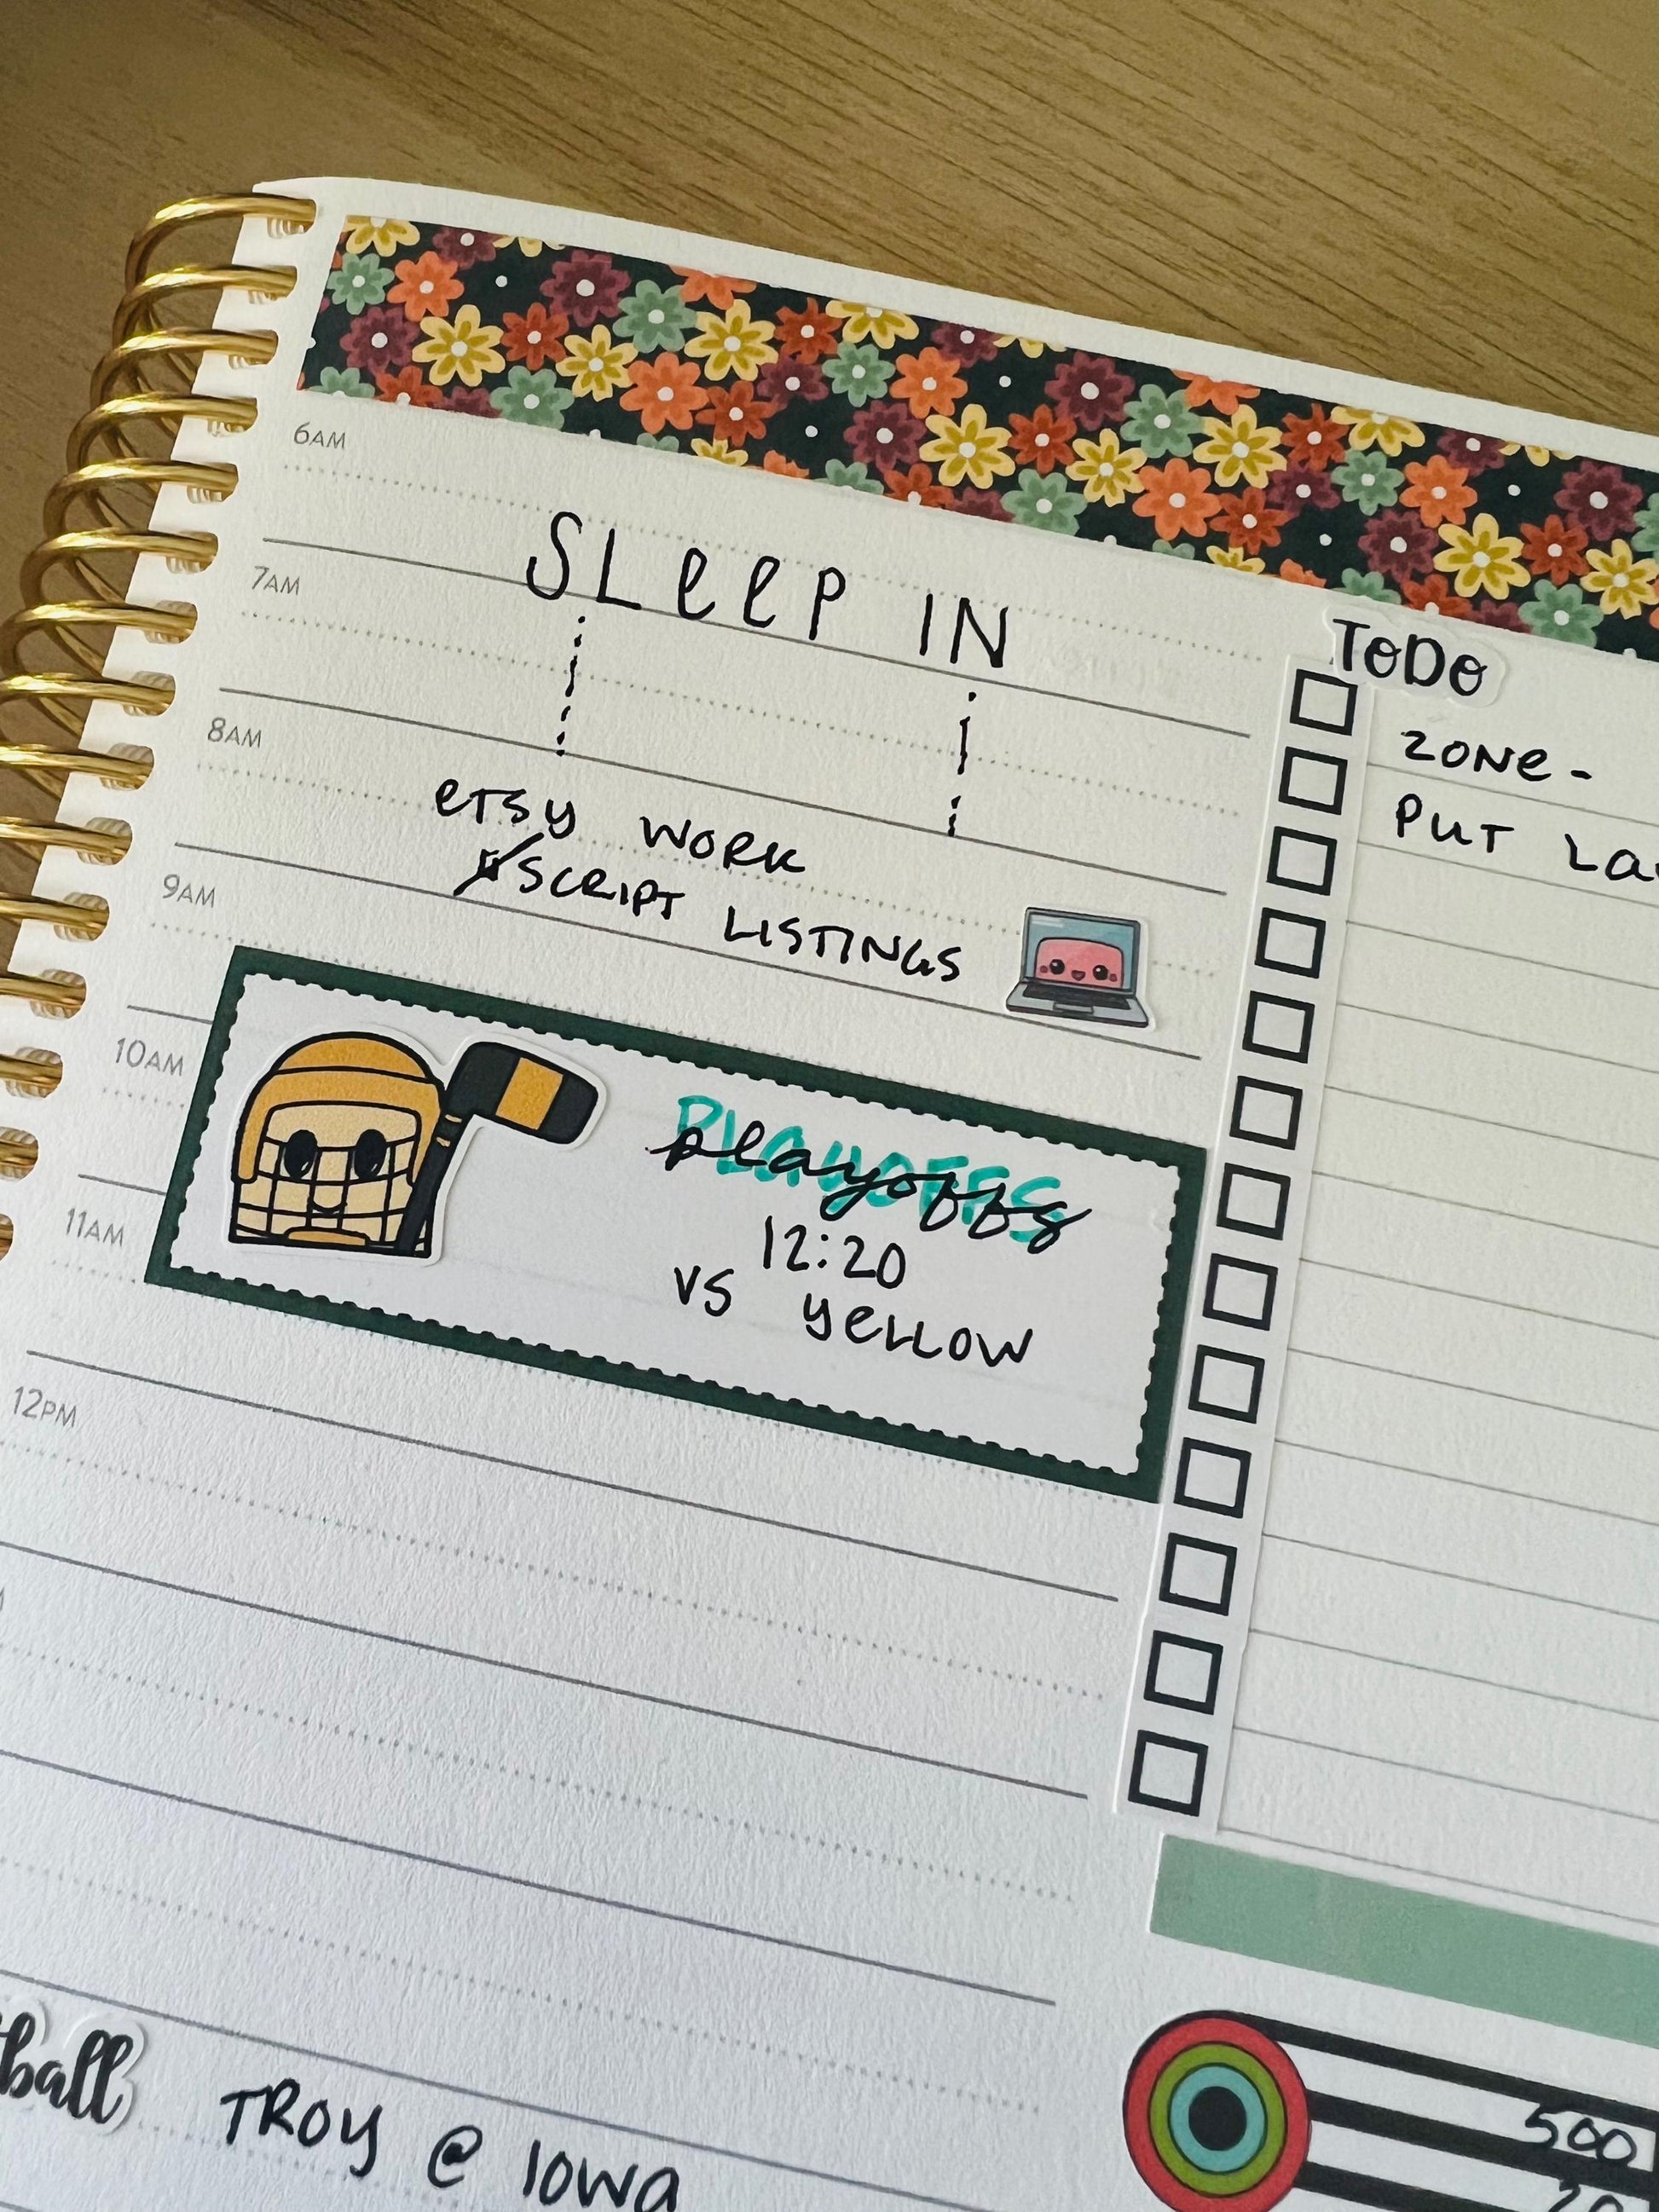 6AM
SLeeP IN
7AM
8AM
eTSy WORK
SCRIPT LISTINGS
9AM
10AM
PLAYOFFS
playoffs
12:20
vs yeLLOW
11AM
12PM
ball
TROY @ IOWA
ToDo
ZONe -
PUT La
500
20